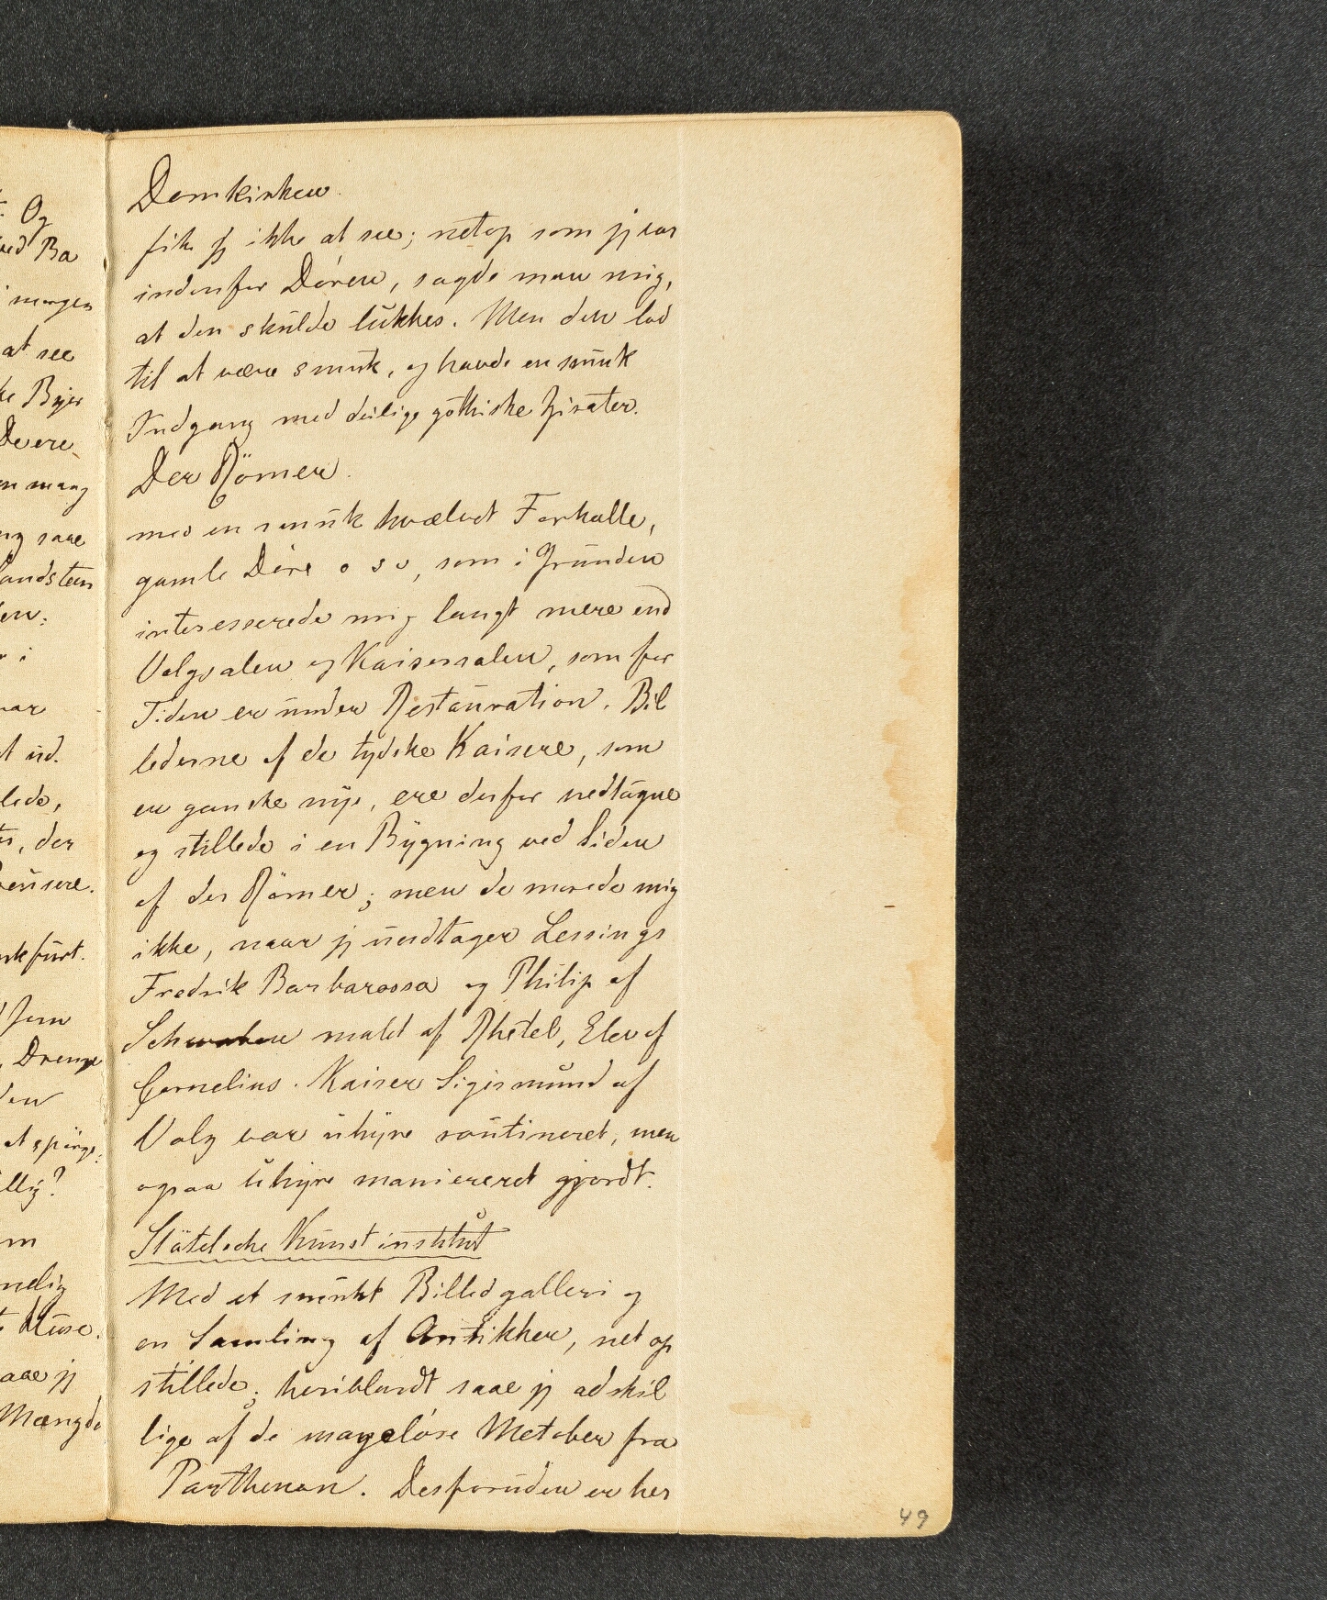 Og
ved Ba
i morgen
at see
ke Byer
De ere
en mang
ng saae
landsteen
den:
r i
var
t ud.
lede,
ts, der
kfurt.
Jern
, Drenge
den
at spörge:
llig?
om
ndig
t Muse.
aae jg
Mængde
Domkirken
fik jg ikke at see; netop som jg var
indenfor Dören, sagde man mig,
at den skulde lukkes. Men den lod
til at være smuk, og havde en smuk
Indgang med deilige gothiske Zirater.
Der Römer.
med en smuk hvælvet Forhalle,
gamle Döre o s v, som i Grunden
interesserede mig langt mere end
Valgsalen og Kaisersalen, som for
Tiden er under Restauration. Bil
lederne af de tydske Kaisere, som
er ganske nye, ere derfor nedtagne
og stillede i en Bygning ved Siden
af der Römer; men de morede mig
ikke, naar jg undtager Lessings
Fredrik Barbarossa og Philip af
Schwaben malet af Rhetel, Elev af
Cornelius. Kaiser Sigismund af
Valg var uhyre routineret, men
ogsaa uhyre maniereret gjordt.
Städelsche Kunstinstitut
Med et smukt Billedgalleri og
en Samling af Antikker, net op
stillede; heriblandt saae jg adskil
lige af de mageløse Metoper fra
Parthenon. Desforuden er her
49